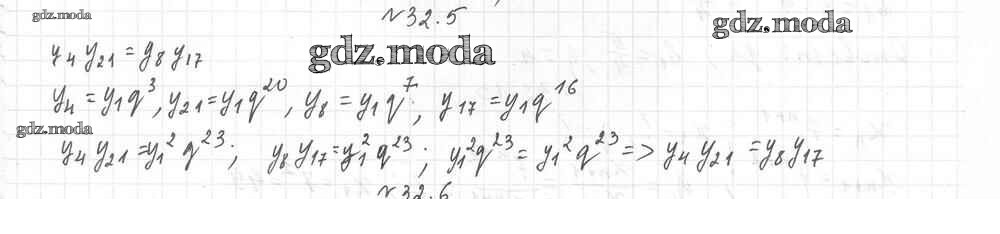 gdz.moda
№32.5
gdz.moda
y₄ y₂₁ = y₈ y₁₇
gdz.moda
y₄ = y₁q³, y₂₁ = y₁q²⁰, y₈ = y₁q⁷; y₁₇ = y₁q¹⁶
gdz.moda
y₄ y₂₁ = y₁² q²³; y₈ y₁₇ = y₁² q²³; y₁²q²³ = y₁² q²³ => y₄ y₂₁ = y₈ y₁₇
№32.6